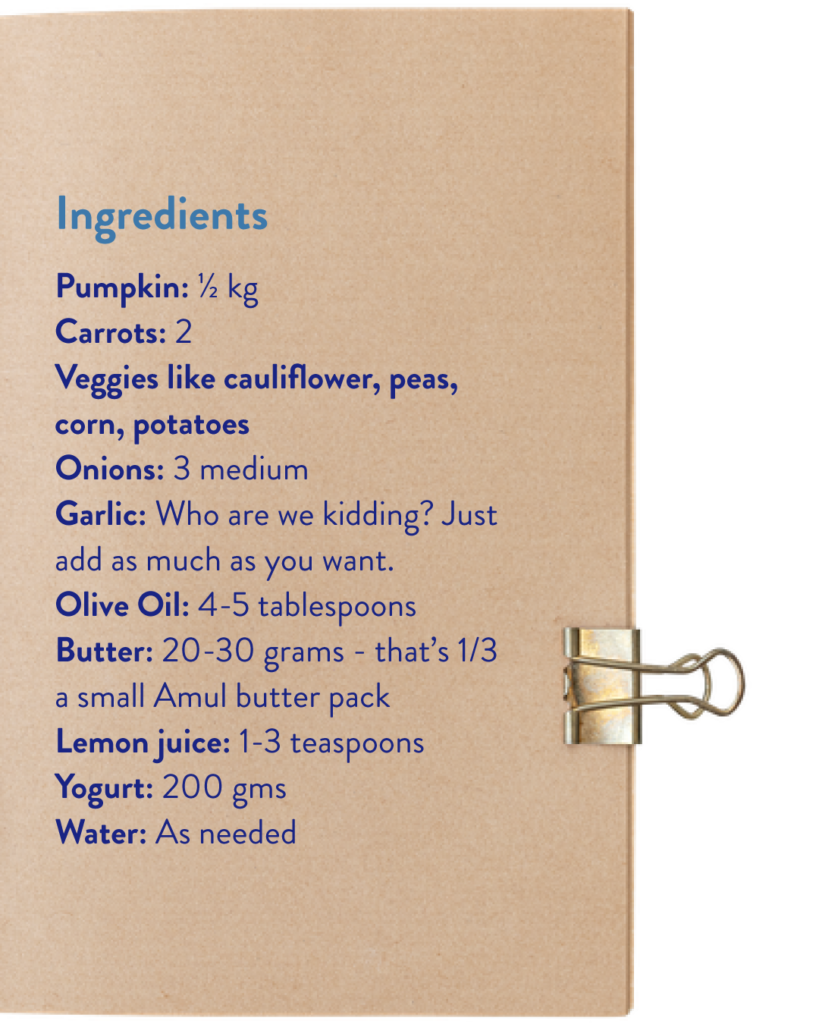 Ingredients
Pumpkin: ½ kg
Carrots: 2
Veggies like cauliflower, peas,
corn, potatoes
Onions: 3 medium
Garlic: Who are we kidding? Just
add as much as you want.
Olive Oil: 4-5 tablespoons
Butter: 20-30 grams - that’s 1/3
a small Amul butter pack
Lemon juice: 1-3 teaspoons
Yogurt: 200 gms
Water: As needed